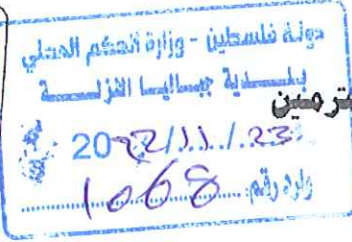 دولة فلسطين - وزارة الحكم المحلي
بلـــدية جباليا النزلـــة
ترمين
2022/11/23
وارد رقم 1068